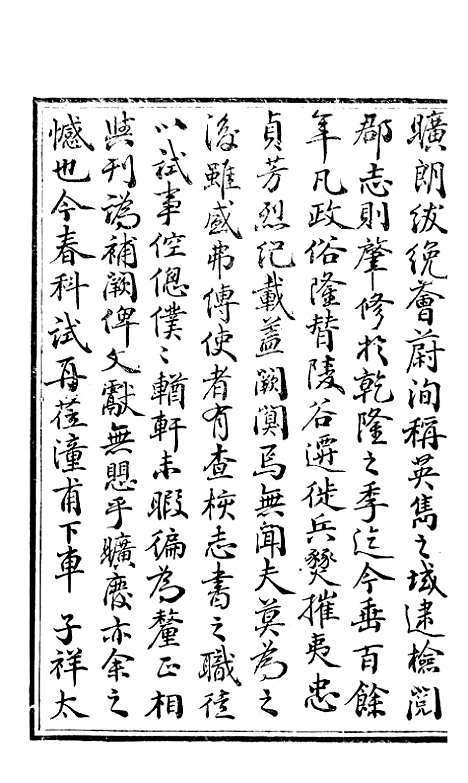 曠朗紱綄薈蔚洵稱英雋之域逮檢閲
郡志則肇修於乾隆之季迄今垂百餘
年凡政俗隆替陵谷遷徙兵燹摧夷忠
貞芳烈紀載蓋闕闃焉無聞夫莫為之
後雖盛弗傳使者有查核志書之職徒
以試事倥傯僕〻輶軒未暇徧為釐正相
與刊譌補闕俾文獻無恧乎曠廢亦余之
憾也今春科試再蒞潼甫下車 子祥太